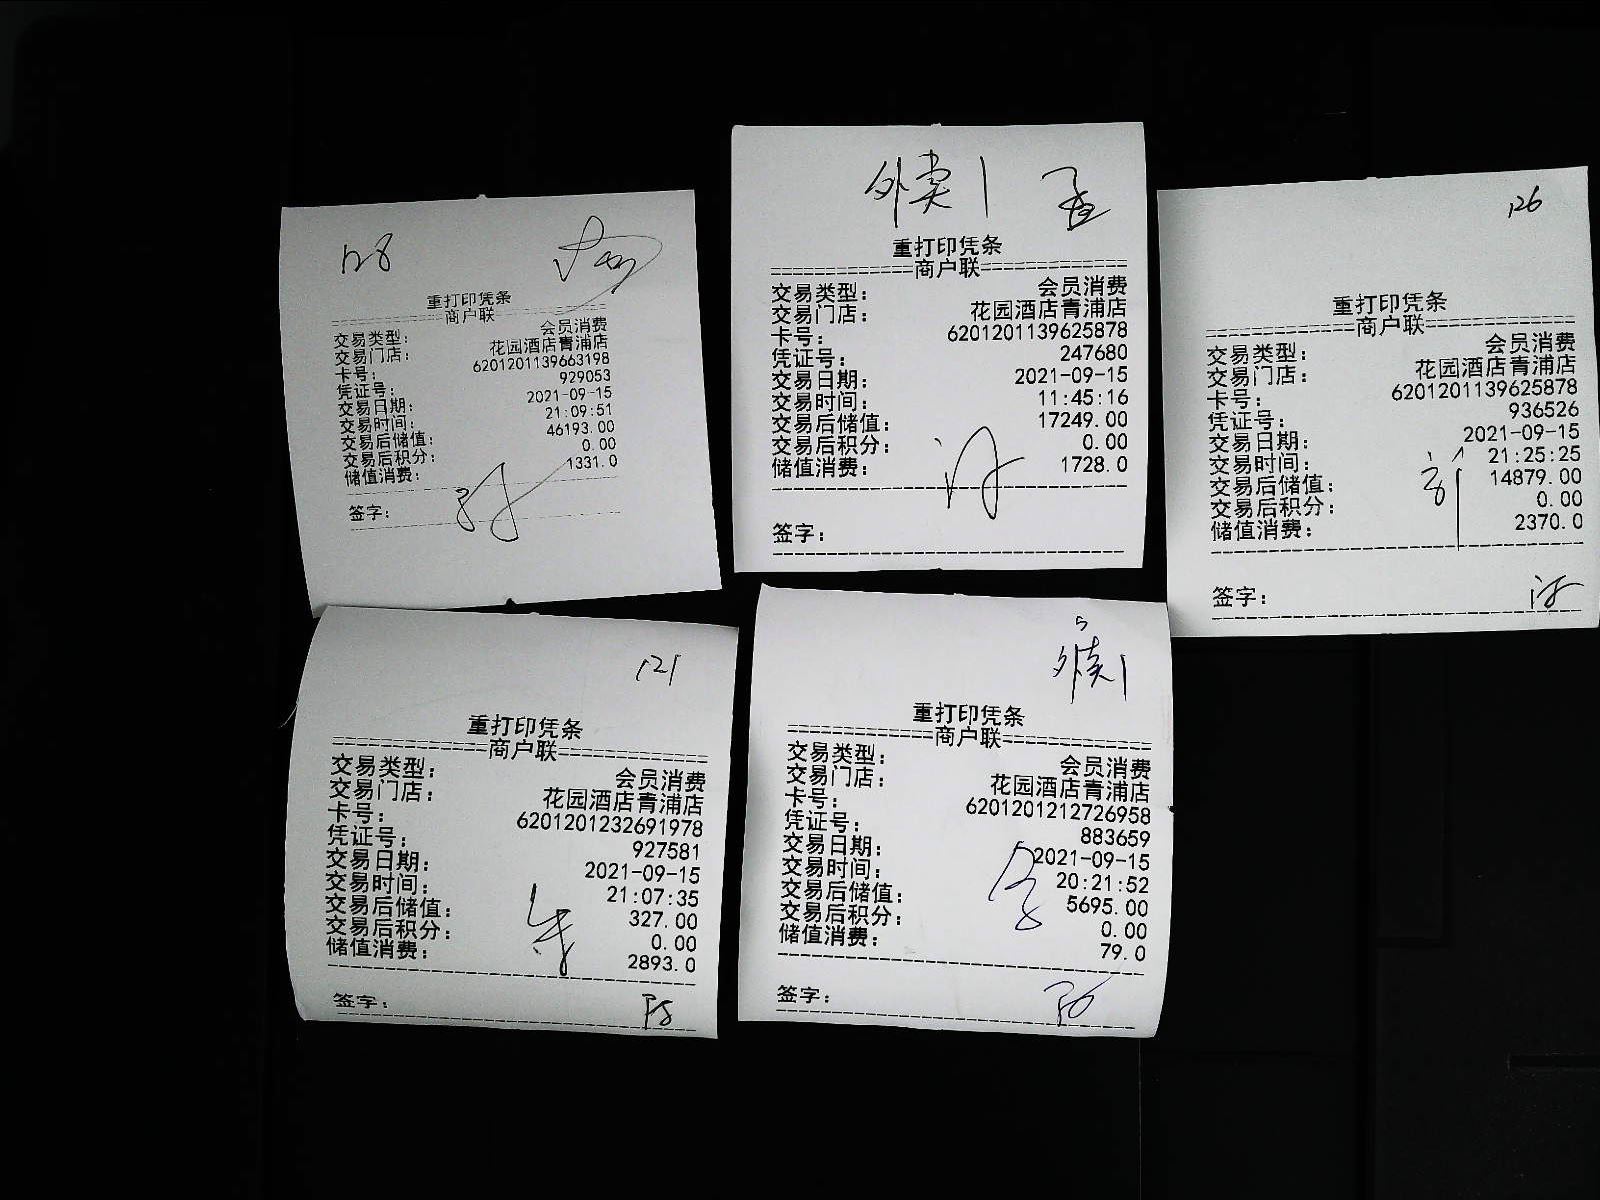 128
重打印凭条
商户联
交易类型: 会员消费
交易门店: 花园酒店青浦店
卡号: 6201201139663198
凭证号: 929053
交易日期: 2021-09-15
交易时间: 21:09:51
交易后储值: 46193.00
交易后积分: 0.00
储值消费: 1331.0
签字:
外卖1
重打印凭条
商户联
交易类型: 会员消费
交易门店: 花园酒店青浦店
卡号: 6201201139625878
凭证号: 247680
交易日期: 2021-09-15
交易时间: 11:45:16
交易后储值: 17249.00
交易后积分: 0.00
储值消费: 1728.0
签字:
126
重打印凭条
商户联
交易类型: 会员消费
交易门店: 花园酒店青浦店
卡号: 6201201139625878
凭证号: 936526
交易日期: 2021-09-15
交易时间: 21:25:25
交易后储值: 14879.00
交易后积分: 0.00
储值消费: 2370.0
签字:
121
重打印凭条
商户联
交易类型: 会员消费
交易门店: 花园酒店青浦店
卡号: 6201201232691978
凭证号: 927581
交易日期: 2021-09-15
交易时间: 21:07:35
交易后储值: 327.00
交易后积分: 0.00
储值消费: 2893.0
签字:
外卖1
重打印凭条
商户联
交易类型: 会员消费
交易门店: 花园酒店青浦店
卡号: 6201201212726958
凭证号: 883659
交易日期: 2021-09-15
交易时间: 20:21:52
交易后储值: 5695.00
交易后积分: 0.00
储值消费: 79.0
签字: